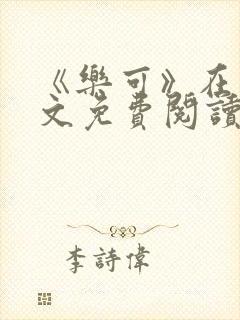 《樂可》在
文免費閱讀
李詩偉